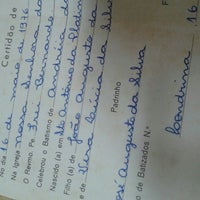 Certidão de
No dia 16 de maio de 1976
Na Igreja nossa Senhora do
O Revmo Pe Frei Bernardo
Celebrou o Batismo de
Nascido (a) em Sto Antonio da Platina
Filho (a) de João Augusto da
e de Vera Lúcia da Silva
Padrinho
José Augusto da Silva
o de Batizados N.º
Londrina
16